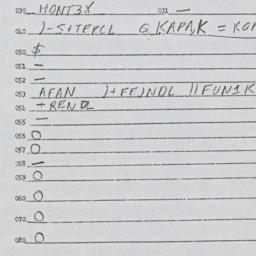 030 HONT3X 031 —
040 )-S+TEPCL @ KAPAK = KON
050 $
051 —
052 —
053 AFAN )+FF)NDL //FUN1K
054 +RENDL
055 —
056 O
057 O
058 —
059 O
060 O
070 O
080 O